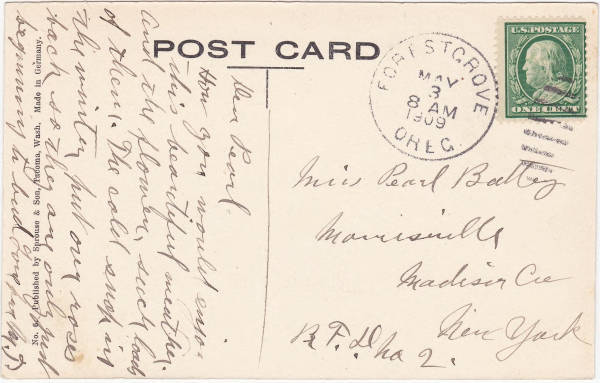 POST CARD
U.S. POSTAGE
ONE CENT
FOREST GROVE
MAY
3
8 AM
1909
OREG.
Dear Pearl-
How you would enjoy
this beautiful weather.
and the flowers, such loads
of them. The cold snap in
the winter put our roses
back so they are only just
beginning to bud
Miss Pearl Bailey
Morrisville
Madison Co
New York
R.F.D. No 2.
Published by Sprouse & Son, Tacoma, Wash. Made in Germany.